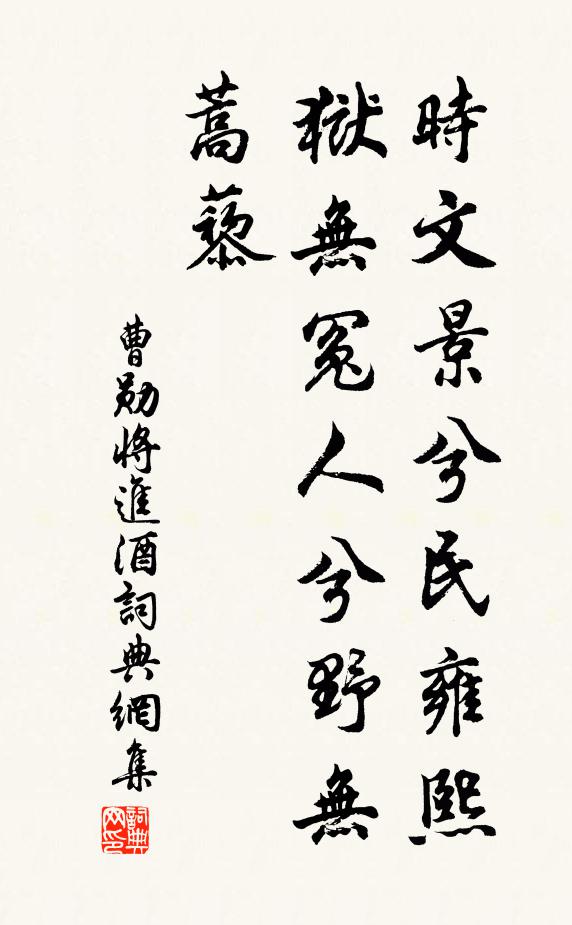 時文景兮民雍熙
獄無冤人兮野無
蒿藜
曹勛將進酒詞典網集
詞典网印